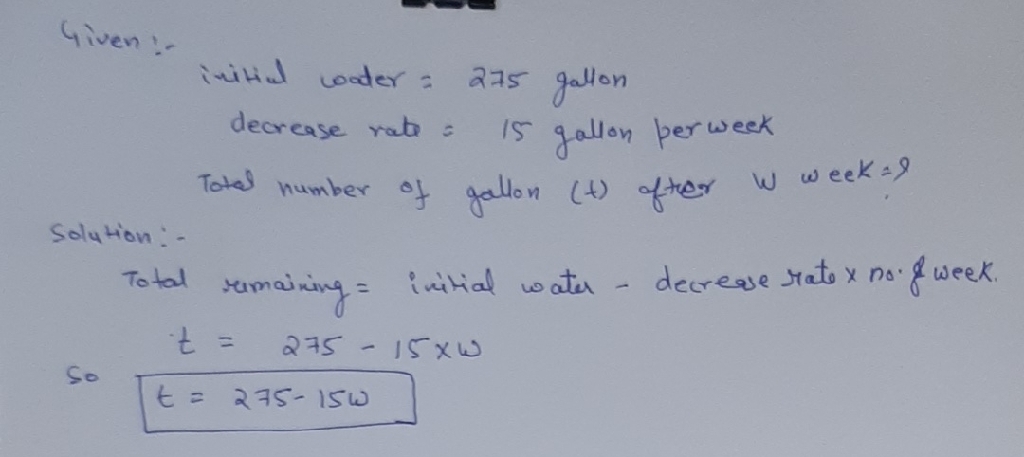 Given :-
initial water = 275 gallon
decrease rate = 15 gallon per week
Total number of gallon (t) after W week = ?
Solution :-
Total remaining = initial water - decrease rate x no. of week.
t = 275 - 15 x w
So
t = 275 - 15w